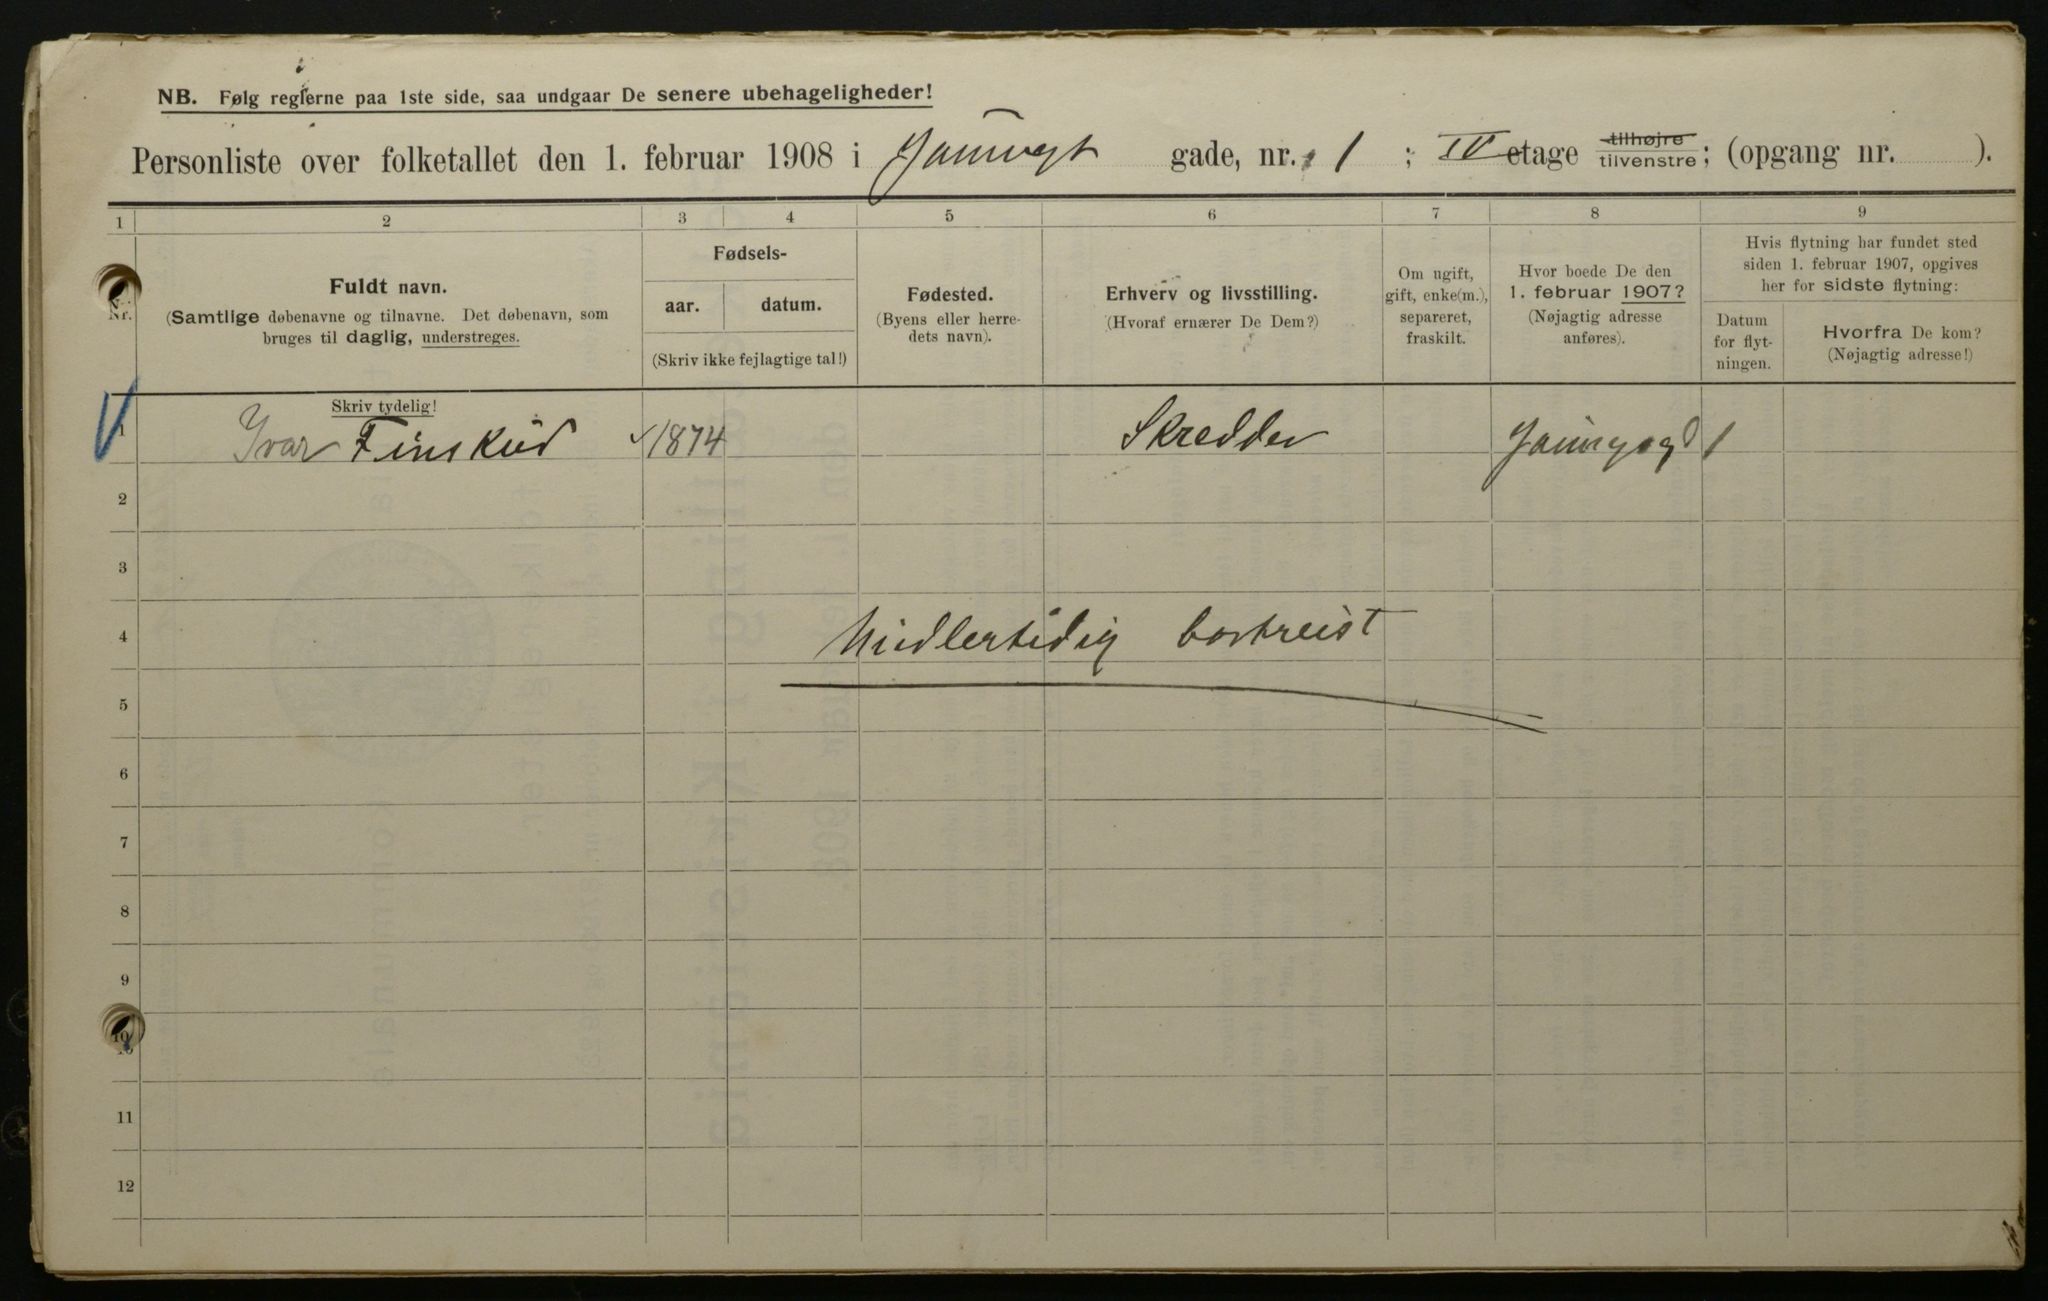 NB. Følg reglerne paa 1ste side, saa undgaar De senere ubehageligheder!
Personliste over folketallet den 1. februar 1908 i gade, nr. 1 ; IV etage tilhøjre tilvenstre; (opgang nr. ).
1 2 3 4 5 6 7 8 9
Nr.
Fuldt navn.
(Samtlige døbenavne og tilnavne. Det døbenavn, som
bruges til daglig, understreges.
Fødsels-
aar. datum.
(Skriv ikke fejlagtige tal!)
Fødested.
(Byens eller herre-
dets navn).
Erhverv og livsstilling.
(Hvoraf ernærer De Dem?)
Om ugift,
gift, enke(m.),
separeret,
fraskilt.
Hvor boede De den
1. februar 1907?
(Nøjagtig adresse
anføres).
Hvis flytning har fundet sted
siden 1. februar 1907, opgives
her for sidste flytning:
Datum
for flyt-
ningen.
Hvorfra De kom?
(Nøjagtig adresse!)
Skriv tydelig!
1 Ivar Finskud 1874 Skredder 1
2
3
4 Midlertidig bortreist
5
6
7
8
9
10
11
12